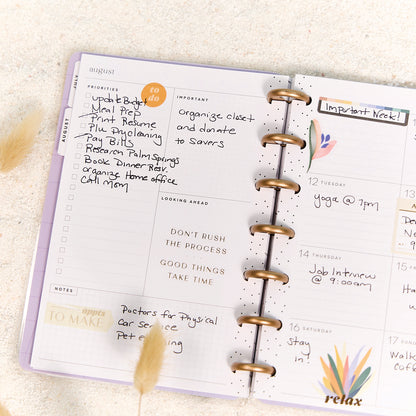 august
JULY
AUGUST
PRIORITIES
to do
update Budget
Meal Prep
Print Resume
Plu Drycleaning
Pay Bills
Research Palm Springs
Book Dinner Resv.
organize Home office
Call Mom
IMPORTANT
organize closet
and donate
to Savers
LOOKING AHEAD
DON'T RUSH
THE PROCESS
GOOD THINGS
TAKE TIME
NOTES
appts
TO MAKE
Doctors for Physical
Car service
Pet
Important Week!
12 TUESDAY
yoga @ 7pm
13
14 THURSDAY
Job Interview
@ 9:00am
15
16 SATURDAY
stay
in!
relax
17
Walk
coffe